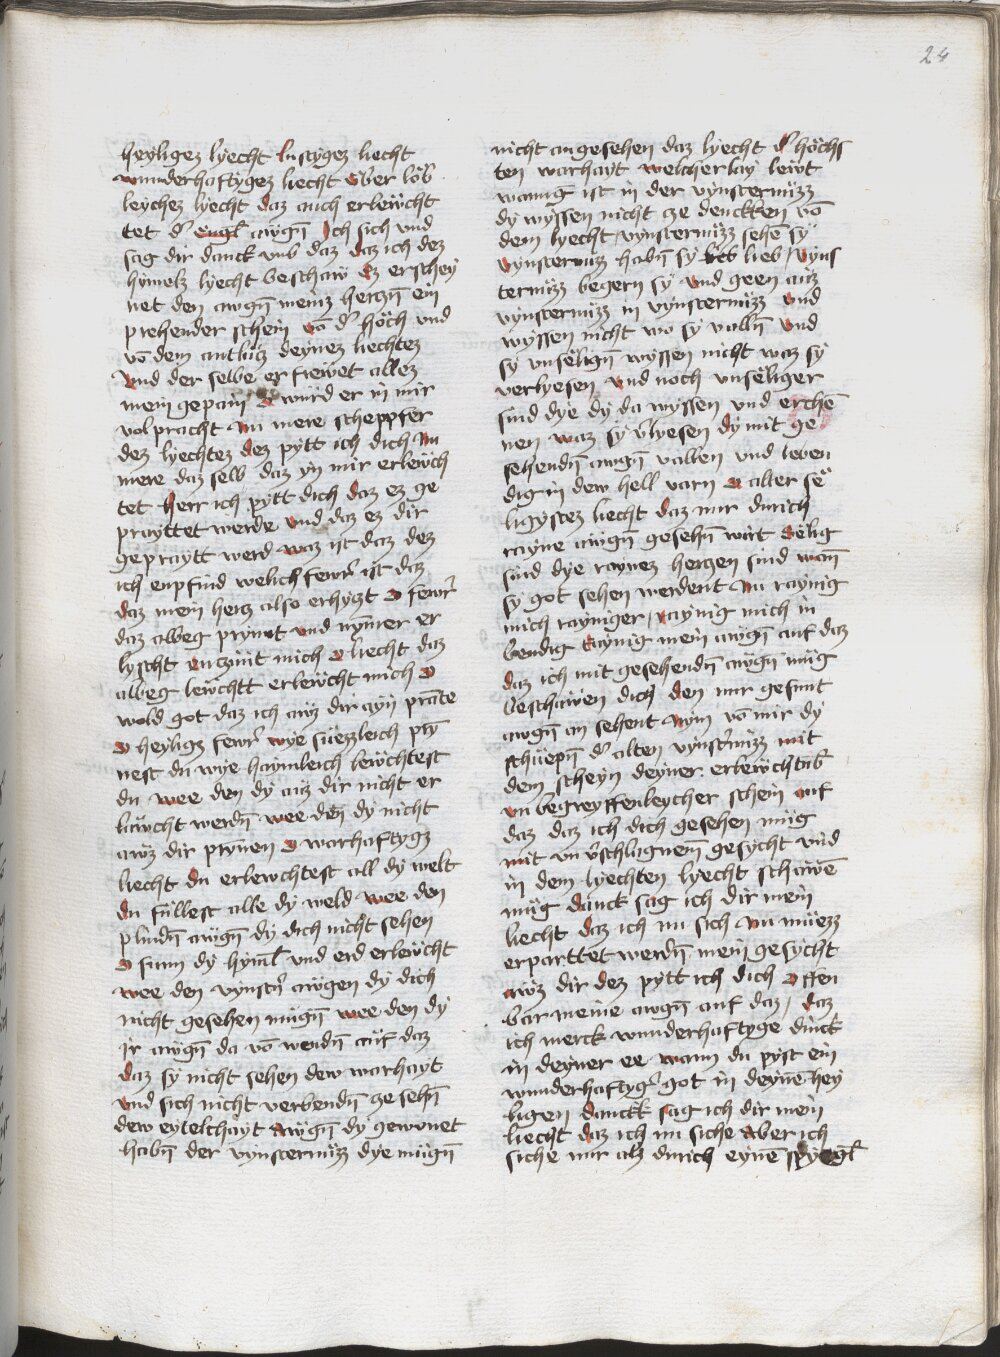 24
heyligez lyecht lustygez liecht
wunderhaftygez liecht vber löb
leychez lyecht daz auch erlewcht
tet d͛ engl awgn̄ Ich sich und
sag dir danck vnb daz daz ich dez
hymelz lyecht beschaw Ez erschey
net den awgn̄ meinz herczn̄ ein
prehender schein vō d͛ höch und
vō dem antlücz deynez liechtez
Vnd der selbe er frewet allez
mein gepain O wurd er in mir
volpracht Nu mere scheppfer
dez lyechtez dez pytt ich dich Nu
mere daz selb daz yn mir erlewch
tet Herr ich pytt dich daz ez ge
prayttet werde und daz ez dir
gepraytt werd waz ist daz dez
ich enpfind welich fewr̄ ist daz
daz mein hercz also erhyczt O fewr̄
daz albeg prynnt und nym̄er er
lyscht enczünt mich O liecht daz
albeg lewchtt erlewcht mich O
wold got daz ich awz dir ayn prāte
O heyligz fewr̄ wye suezzleich pry̅
nest du wye haymleich lewchtest
du wee den dy auz dir nicht er
lawcht werdn̄ wee den̄ dy nicht
awz dir prynen O warhaftygz
liecht du erlewchtest all dy welt
du füllest alle dy weld wee den
plindn̄ awgn̄ dy dich nicht sehen
O sunn dy hym̄l und erd erlewcht
wee den vynstn̄ awgen dy dich
nicht gesehen mügn̄ wee den dy
ir awgn̄ da vō wendn̄ auf daz
daz sy nicht sehen dew warhayt
und sich nicht verbendn̄ ze sehn̄
dew eytelchayt Awgn̄ dy gewonet
habn̄ der vynsternüzz dye mügn̄
nicht angesehen daz lyecht d͛ höchs
ten warhayt welcherlay lewt
wanng ist in der vynsternüzz
dy wyssen nicht cze denckken vō
dem lyecht vynsternüzz sehē sy
Vynsternüz habn̄ sy lieb Vyns
ternüzz begern sy Vnd geen auz
vynsternüzz in vynsternüzz und
wyssen nicht wo sy valln̄ Vnd
sy vnsëlign̄ wyssen nicht waz sy
verlyesen Vnd noch vnsëliger
sind dye dy da wyssen und erchē
nen waz sy v̄lyesen dy mit ge
sehendn̄ awgn̄ vallen und leben
dig in dew hell varn O aller së
ligystez liecht daz nur durich
rayne awgn̄ gesehn̄ wirt Sëlig
sind dye raynez herczen sind wan̄
sy got sehen werdent Nu raynig
mich rayniger / raynig mich in
bendig Raynig mein awgn̄ auf daz
daz ich mit gesehendn̄ awgn̄ müg
beschawen dich den nur gesunt
awgn̄ an sehent Nym vō mir dy
schüepn̄ d͛ alten vynstn̄üzz mit
dem scheyn deyner erlewchtūg
vnbegreyffenleycher schein auf
daz daz ich dich gesehen müg
mit vn v̄schlagnem̄ gesycht und
in dem lyechten lyecht schawē
müg danck sag ich dir mein
liecht daz ich nu sich Nu müezz
erparttet werdn̄ mein gesycht
awz dir dez pytt ich dich Offen
bar meine awgn̄ auf daz / daz
ich merck wunderhaftyge dinck
in deyner ee wann du pyst ein
wunderhaftyg͛ got in deynē hey
ligen danckk sag ich dir mein
liecht daz ich nu siche Aber ich
siche nur alz durich eynē spyegl̄